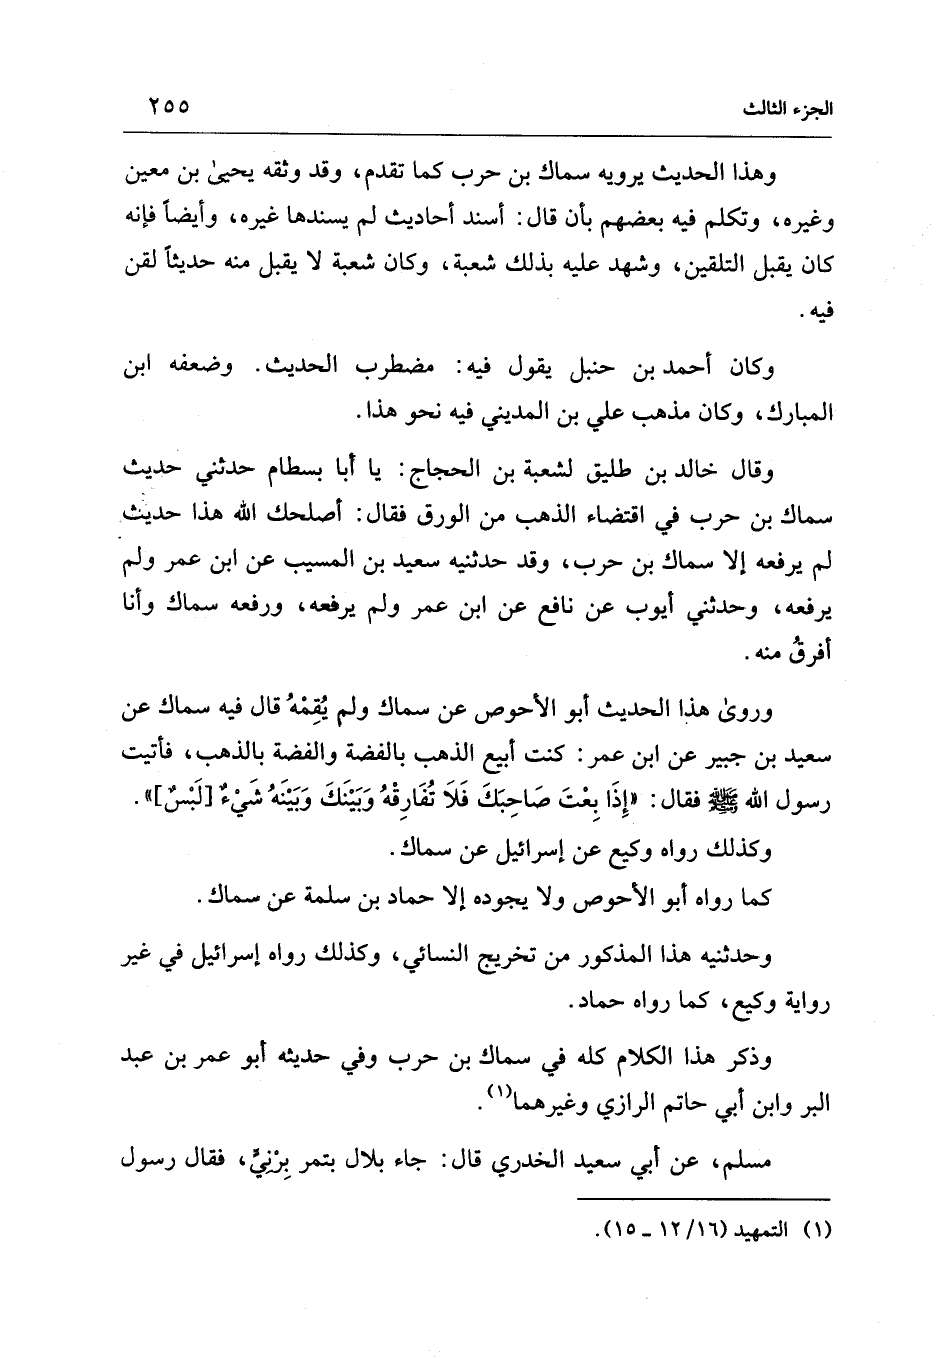 الجزء الثالث ٢٥٥
وهذا الحديث يرويه سماك بن حرب كما تقدم، وقد وثقه يحيىٰ بن معين
وغيره، وتكلم فيه بعضهم بأن قال: أسند أحاديث لم يسندها غيره، وأيضاً فإنه
كان يقبل التلقين، وشهد عليه بذلك شعبة، وكان شعبة لا يقبل منه حديثاً لقن
فيه.
وكان أحمد بن حنبل يقول فيه: مضطرب الحديث. وضعفه ابن
المبارك، وكان مذهب علي بن المديني فيه نحو هذا.
وقال خالد بن طليق لشعبة بن الحجاج: يا أبا بسطام حدثني حديث
سماك بن حرب في اقتضاء الذهب من الورق فقال: أصلحك الله هذا حديث
لم يرفعه إلا سماك بن حرب، وقد حدثنيه سعيد بن المسيب عن ابن عمر ولم
يرفعه، وحدثني أيوب عن نافع عن ابن عمر ولم يرفعه، ورفعه سماك وأنا
أفرقُ منه.
وروىٰ هذا الحديث أبو الأحوص عن سماك ولم يُقِمْهُ قال فيه سماك عن
سعيد بن جبير عن ابن عمر: كنت أبيع الذهب بالفضة والفضة بالذهب، فأتيت
رسول الله ﷺ فقال: «إِذَا بِعْتَ صَاحِبَكَ فَلَا تُفَارِقْهُ وَبَيْنَكَ وَبَيْنَهُ شَيْءٌ [لَبْسٌ]».
وكذلك رواه وكيع عن إسرائيل عن سماك.
كما رواه أبو الأحوص ولا يجوده إلا حماد بن سلمة عن سماك.
وحدثنيه هذا المذكور من تخريج النسائي، وكذلك رواه إسرائيل في غير
رواية وكيع، كما رواه حماد.
وذكر هذا الكلام كله في سماك بن حرب وفي حديثه أبو عمر بن عبد
البر وابن أبي حاتم الرازي وغيرهما(١).
مسلم، عن أبي سعيد الخدري قال: جاء بلال بتمر بِرْنِيٍّ، فقال رسول
(١) التمهيد (١٦/ ١٢ ـ ١٥).